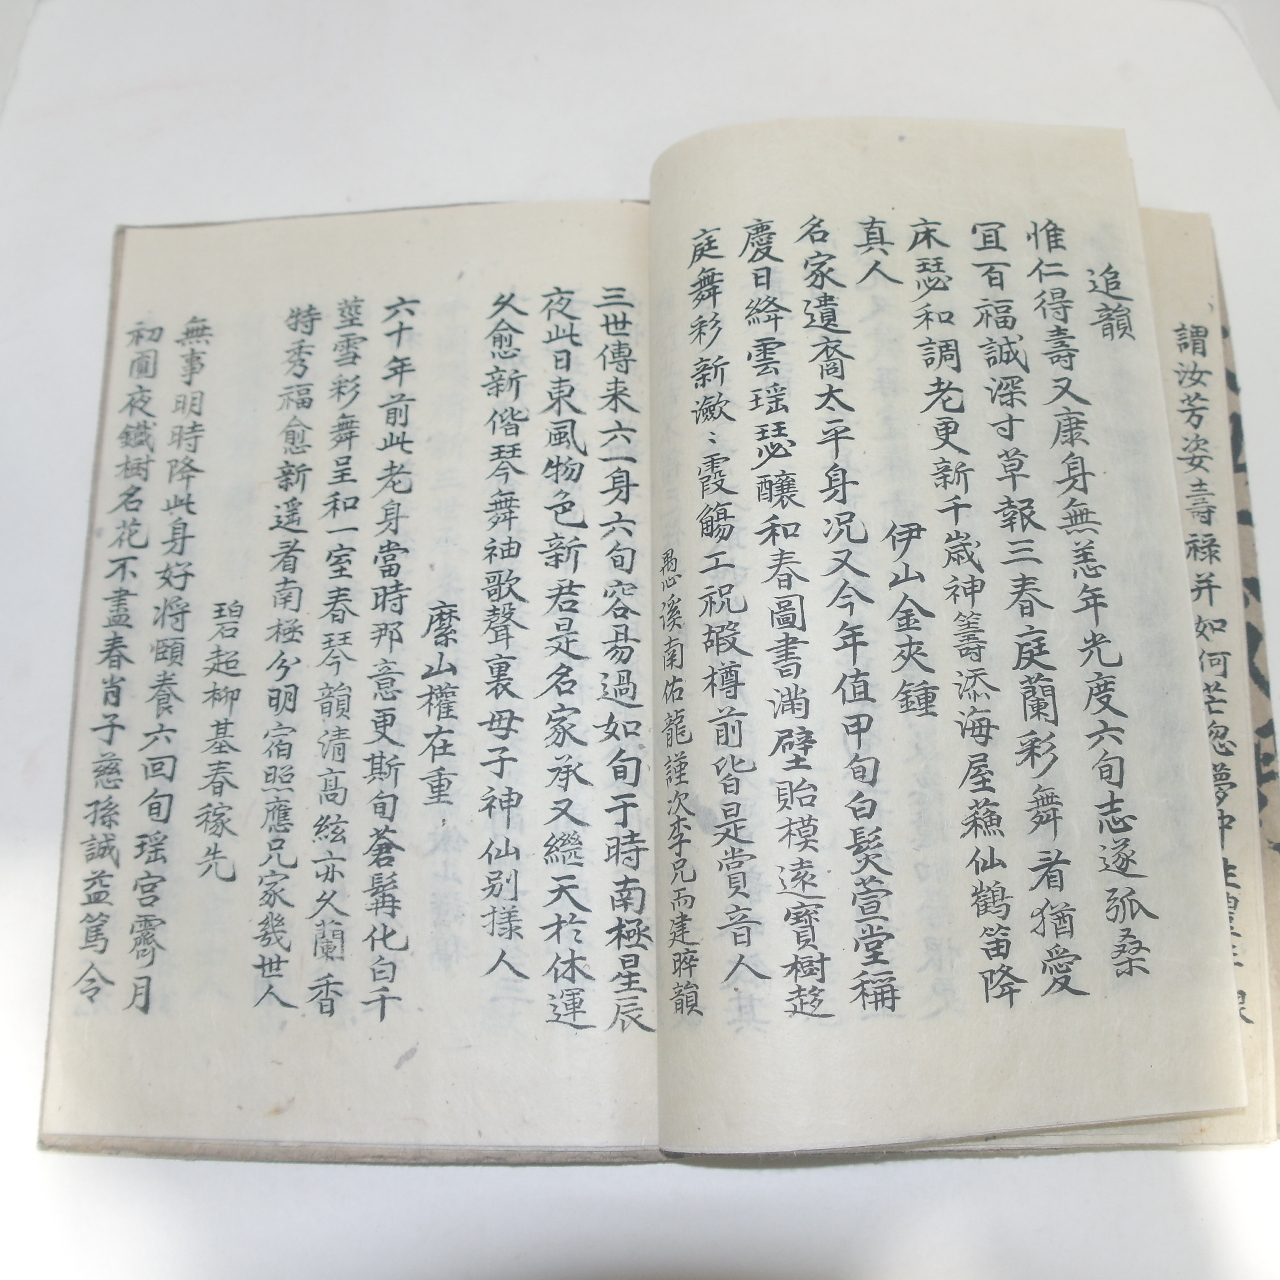 謂汝芳姿壽祿并如何芒忽夢中
追韻
惟仁得壽又康身無恙年光度六旬志遂弧桑
冝百福誠深寸草報三春庭蘭彩舞看猶愛
床瑟和調老更新千歳神籌添海屋蘓仙鶴笛降
真人
伊山金夾鍾
名家遺裔太平身况又今年値甲旬白髮萱堂稱
慶日絳雲瑶瑟釀和春圖書滿壁貽模遠寶樹趍
庭舞彩新瀲〻霞觴工祝嘏樽前皆是賞音人
愚溪南佑龍謹次李兄而建晬韻
三世傳来六一身六旬容昜過如旬于時南極星辰
夜此日東風物色新君是名家承又繼天於休運
久愈新偕琴舞袖歌聲裏母子神仙别㨾人
縻山權在重
六十年前此老身當時那意更斯旬蒼髯化白千
莖雪彩舞呈和一室春琴韻清高絃亦久蘭香
特秀福愈新遥看南極分明宿照應兄家幾世人
碧超柳基春稼先
無事明時降此身好將頤養六回旬瑶宫霽月
初圓夜鐵樹名花不盡春肖子慈孫誠益篤令